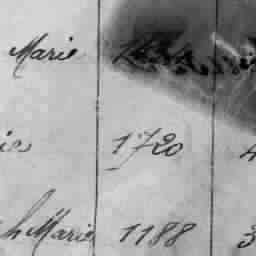 Marie
is 1720 4
h Marie 1188 3